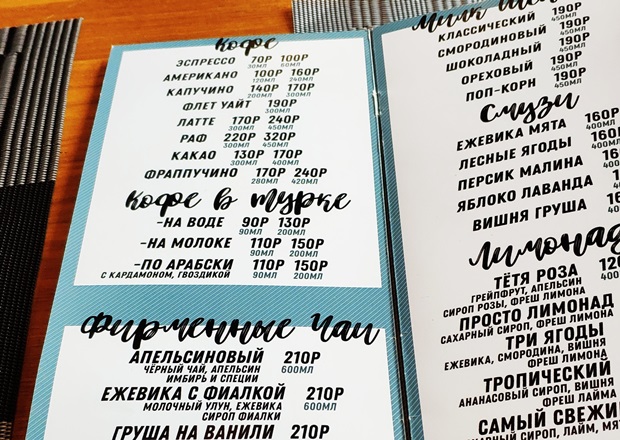 Кофе
ЭСПРЕССО 70Р 100Р
30МЛ 60МЛ
АМЕРИКАНО 100Р 160Р
120МЛ 240МЛ
КАПУЧИНО 140Р 170Р
200МЛ 300МЛ
ФЛЕТ УАЙТ 190Р
300МЛ
ЛАТТЕ 170Р 240Р
300МЛ 450МЛ
РАФ 220Р 320Р
300МЛ 450МЛ
КАКАО 130Р 170Р
300МЛ 400МЛ
ФРАППУЧИНО 170Р 240Р
280МЛ 420МЛ
Кофе в турке
-НА ВОДЕ 90Р 130Р
90МЛ 200МЛ
-НА МОЛОКЕ 110Р 150Р
90МЛ 200МЛ
-ПО АРАБСКИ 110Р 150Р
С КАРДАМОНОМ, ГВОЗДИКОЙ 90МЛ 200МЛ
Фирменные Чаи
АПЕЛЬСИНОВЫЙ 210Р
ЧЁРНЫЙ ЧАЙ, АПЕЛЬСИН 600МЛ
ИМБИРЬ И СПЕЦИИ
ЕЖЕВИКА С ФИАЛКОЙ 210Р
МОЛОЧНЫЙ УЛУН, ЕЖЕВИКА 600МЛ
СИРОП ФИАЛКИ
ГРУША НА ВАНИЛИ 210Р
Милк
КЛАССИЧЕСКИЙ 190Р
450МЛ
СМОРОДИНОВЫЙ 190Р
450МЛ
ШОКОЛАДНЫЙ 190Р
450МЛ
ОРЕХОВЫЙ 190Р
450МЛ
ПОП-КОРН 190Р
450МЛ
Смузи
ЕЖЕВИКА МЯТА 160Р
400МЛ
ЛЕСНЫЕ ЯГОДЫ 160
400М
ПЕРСИК МАЛИНА 160
400
ЯБЛОКО ЛАВАНДА
ВИШНЯ ГРУША
400
Лимонад
ТЁТЯ РОЗА 120
ГРЕЙПФРУТ, АПЕЛЬСИН 400
СИРОП РОЗЫ, ФРЕШ ЛИМОНА
ПРОСТО ЛИМОНАД
САХАРНЫЙ СИРОП, ФРЕШ ЛИМОНА
ТРИ ЯГОДЫ
ЕЖЕВИКА, СМОРОДИНА, ВИШНЯ
ФРЕШ ЛИМОНА
ТРОПИЧЕСКИЙ
АНАНАСОВЫЙ СИРОП, ВИШНЯ
ФРЕШ ЛАЙМА
САМЫЙ СВЕЖИ
СИРОП, ЛАЙМ, МЯТ